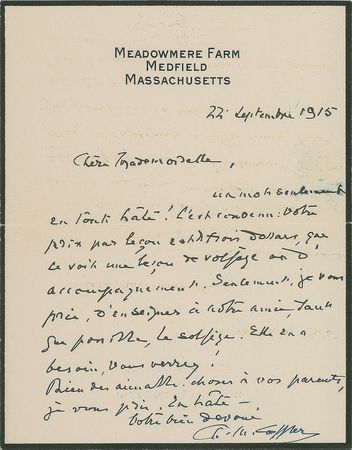 MEADOWMERE FARM
MEDFIELD
MASSACHUSETTS
22 Septembre 1915
Chère Mademoiselle,
un mot seulement
en toute hâte! C'est convenu: votre
prix par leçon est trois dollars, que
ce soit une leçon de solfège ou d'
accompagnement. Seulement, je vous
prie, d'enseigner à notre amie, tant
que possible, le solfège. Elle en a
besoin, vous verrez!
Bien des aimables choses à vos parents,
je vous prie. En hâte -
Votre bien dévoué
Ch. M. Loeffler